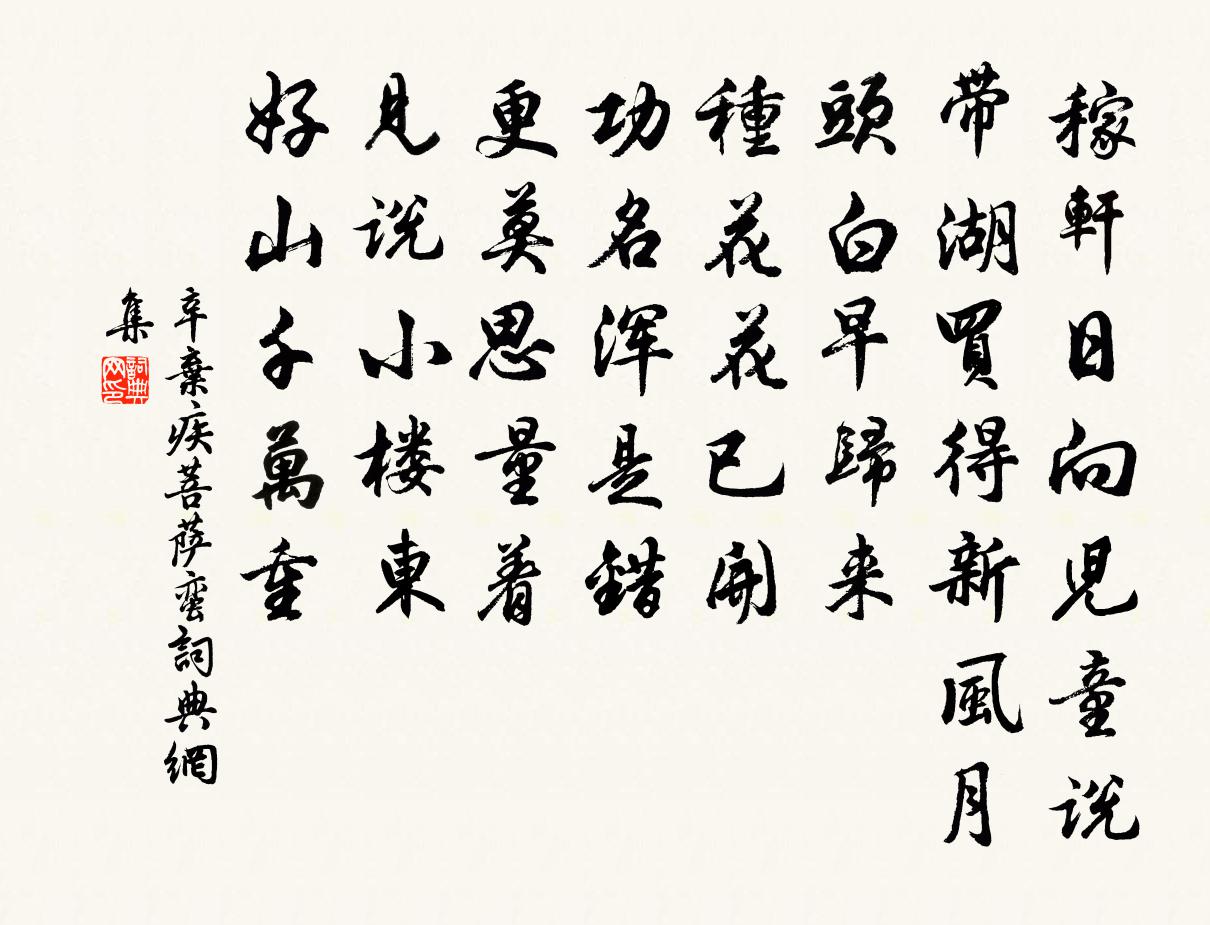 稼軒日向児童説
带湖買得新風月
頭白早歸来
種花花已開
功名浑是錯
更莫思量着
見说小楼東
好山千萬重
辛棄疾菩萨蛮詞典網
集
詞典
网印